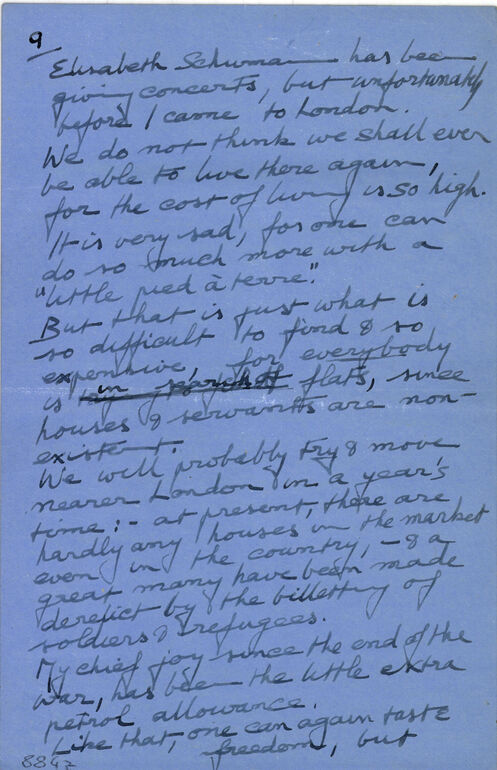 9
Elisabeth Schumann has been
giving concerts, but unfortunately
before I came to London.
We do not think we shall ever
be able to live there again,
for the cost of living is so high.
It is very sad, for one can
do so much more with a
"little pied à terre".
But that is just what is
so difficult to find & so
expensive, for everybody
is in search of flats, since
houses & servants are non-
existent.
We will probably try & move
nearer London in a year's
time :- at present, there are
hardly any houses in the market
even in the country, - & a
great many have been made
derelict by the billetting of
soldiers & refugees.
My chief joy since the end of the
war, has been the little extra
petrol allowance.
Like that, one can again taste
freedom, but
8847